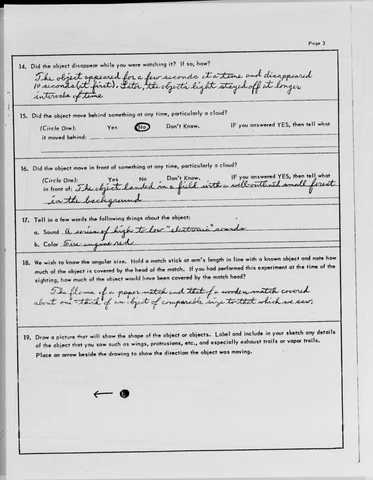 Page 3
14. Did the object disappear while you were watching it? If so, how?
The object appeared for a few seconds at a time and disappeared
10 seconds (at first). Later, the objects light stayed off at longer
intervals of time
15. Did the object move behind something at any time, particularly a cloud?
(Circle One): Yes No Don't Know. IF you answered YES, then tell what
it moved behind:
16. Did the object move in front of something at any time, particularly a cloud?
(Circle One): Yes No Don't Know. IF you answered YES, then tell what
in front of: The object landed in a field with a small forest
in the background
17. Tell in a few words the following things about the object:
a. Sound A series of high to low "electronic" sounds
b. Color Fire engine red
18. We wish to know the angular size. Hold a match stick at arm's length in line with a known object and note how
much of the object is covered by the head of the match. If you had performed this experiment at the time of the
sighting, how much of the object would have been covered by the match head?
The flame of a paper match and that of a wooden match covered
about one-third of an object of comparable size to that which we saw.
19. Draw a picture that will show the shape of the object or objects. Label and include in your sketch any details
of the object that you saw such as wings, protrusions, etc., and especially exhaust trails or vapor trails.
Place an arrow beside the drawing to show the direction the object was moving.